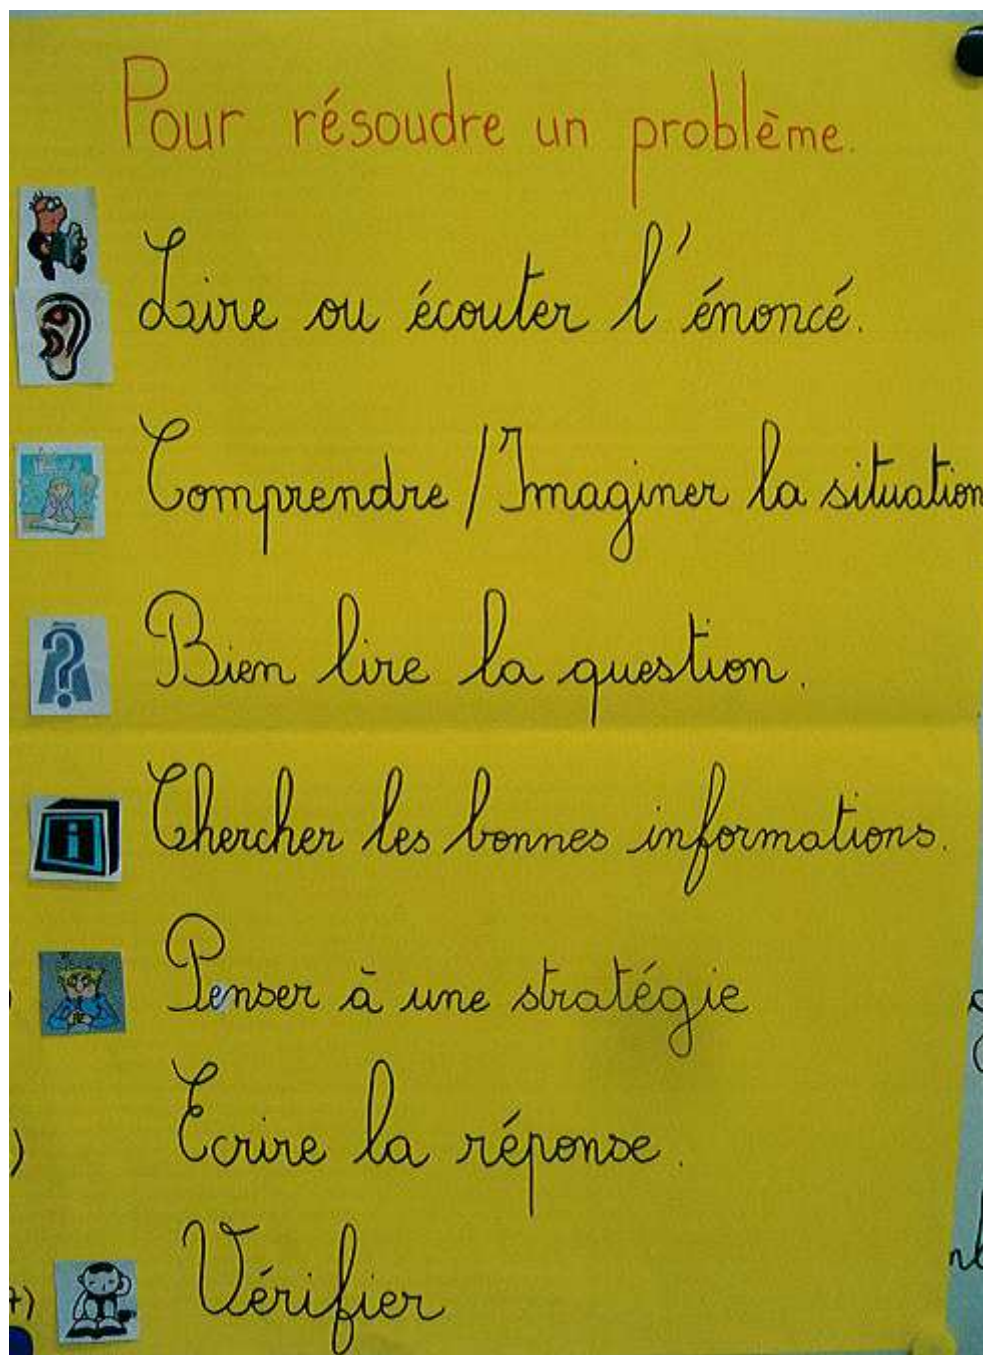 Pour résoudre un problème.
Lire ou écouter l'énoncé.
Comprendre / Imaginer la situation
Bien lire la question.
Chercher les bonnes informations.
Penser à une stratégie
Ecrire la réponse.
7) Vérifier